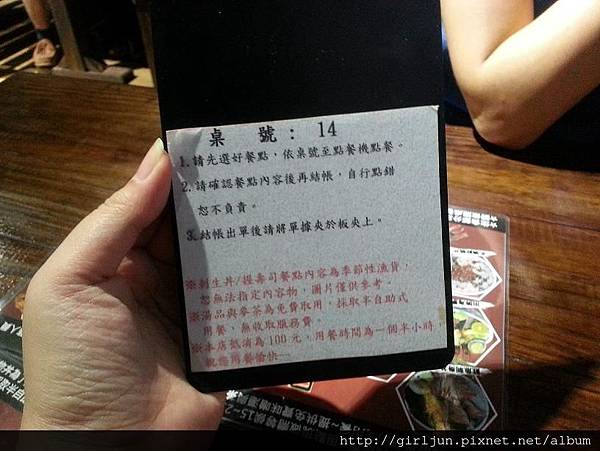 桌 號： 14
1.請先選好餐點，依桌號至點餐機點餐。
2.請確認餐點內容後再結帳，自行點錯
恕不負責。
3.結帳出單後請將單據夾於板夾上。
※刺生丼/握壽司餐點內容為季節性漁貨，
恕無法指定內容物，圖片僅供參考。
※湯品與麥茶為免費取用，採取半自助式
用餐，無收取服務費。
※本店低消為100元，用餐時間為一個半小時，
祝您用餐愉快
http://girljun.pixnet.net/album